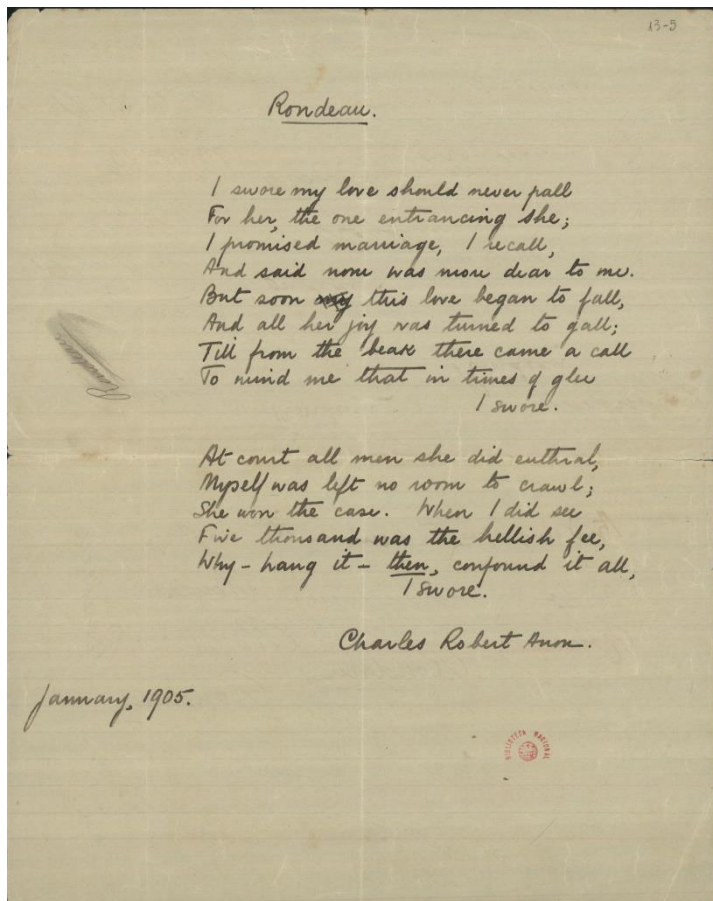 13-5
Rondeau.
I swore my love should never pall
For her, the one entrancing she;
I promised marriage, I recall,
And said none was more dear to me.
But soon my this love began to fall,
And all her joy was turned to gall;
Till from the beak there came a call
To mind me that in times of glee
I swore.
At court all men she did enthral,
Myself was left no room to crawl;
She won the case. When I did see
Five thousand was the hellish fee,
Why – hang it – then, confound it all,
I swore.
Charles Robert Anon.
January, 1905.
BIBLIOTECA NACIONAL